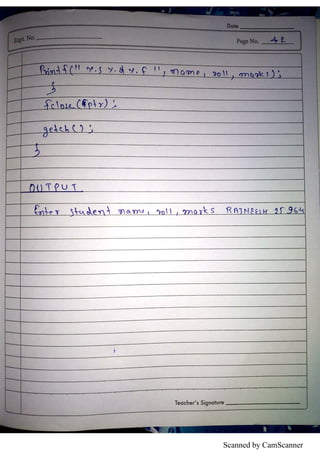 Date
Expt. No.
Page No. 42
Printf(" %s %d %f ", name, roll, marks);
}
fclose(fptr);
getch();
}
OUTPUT
Enter student name, roll, marks RAJNEESH 25 964
Teacher's Signature
Scanned by CamScanner